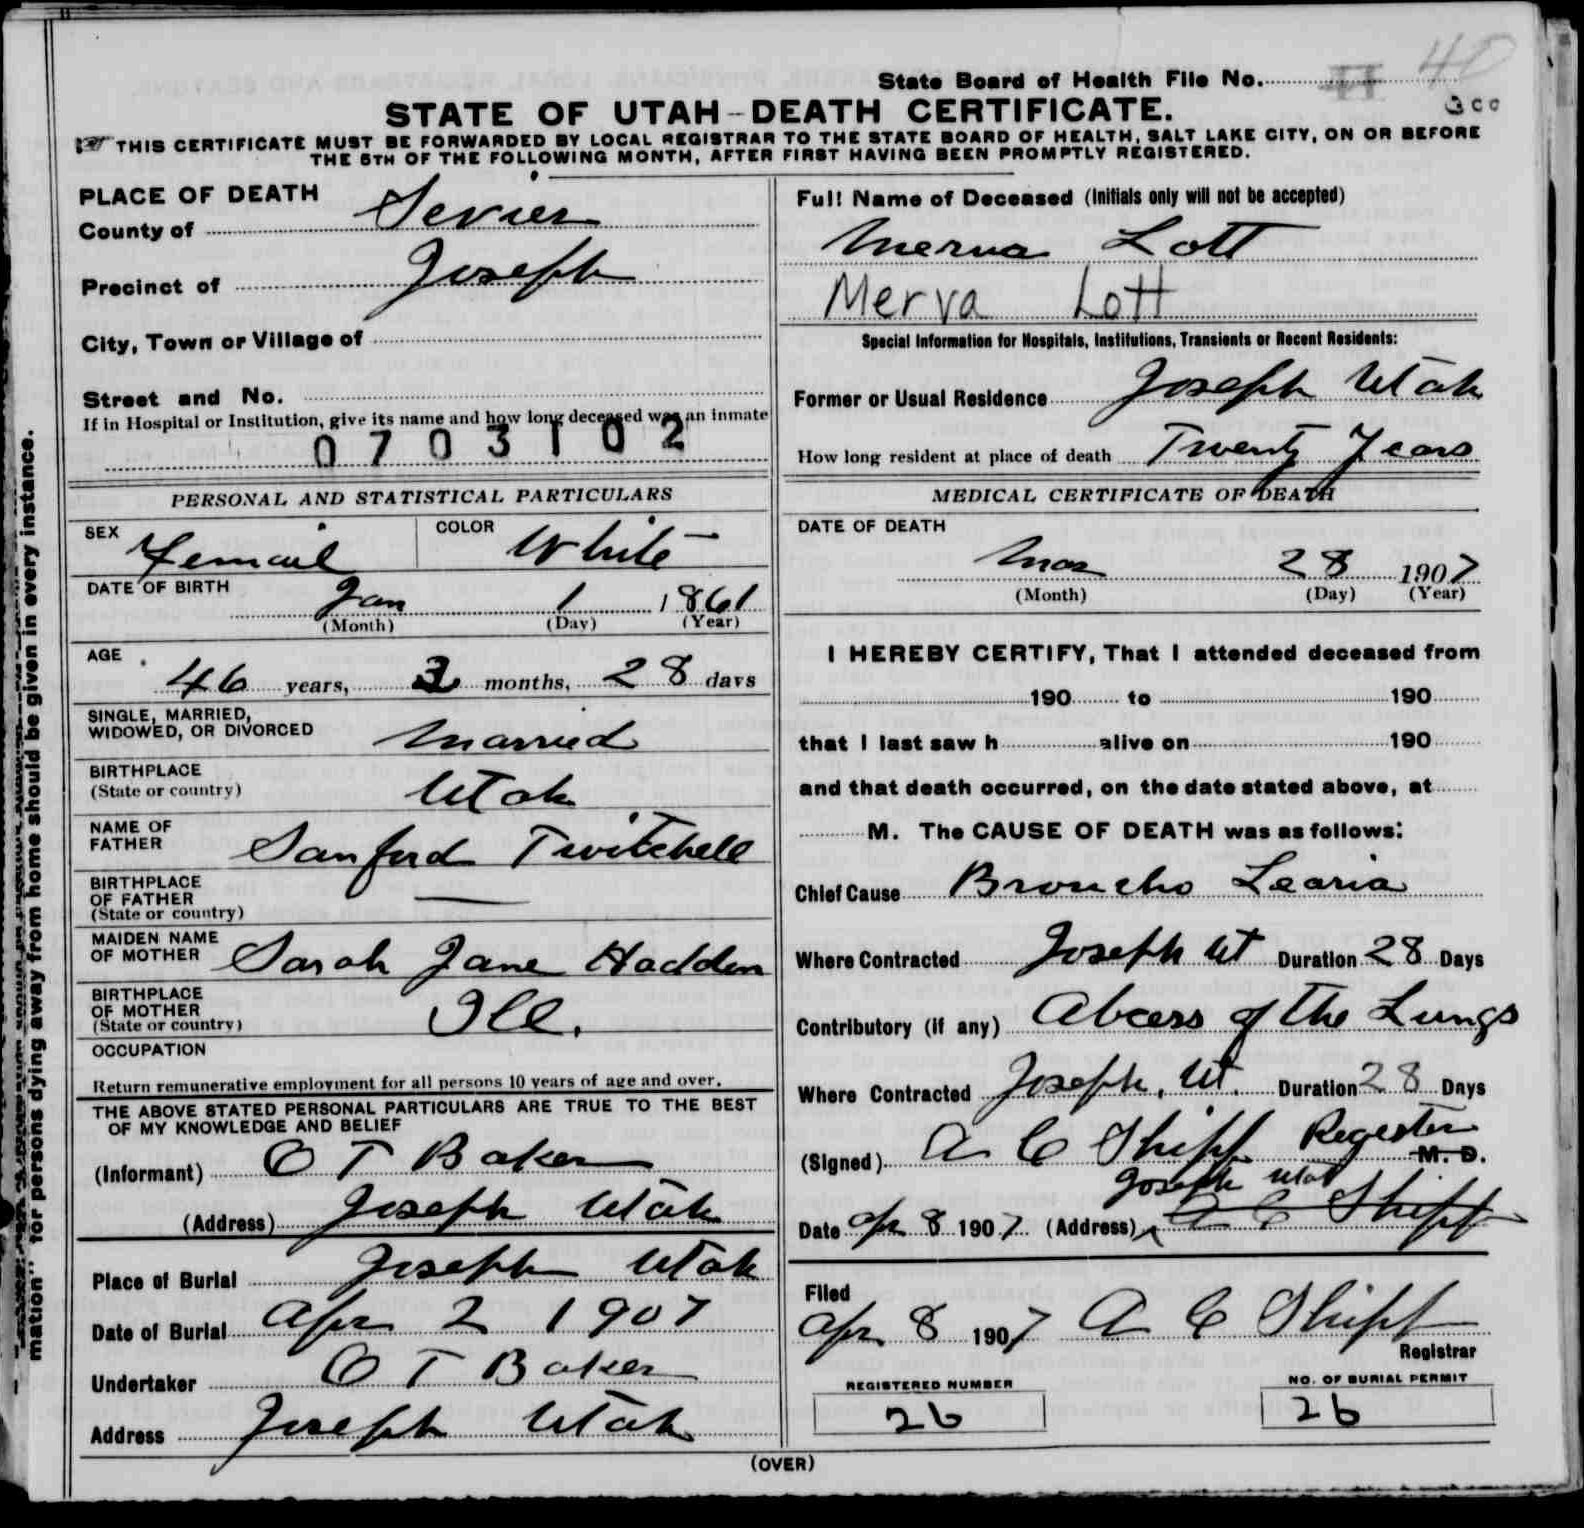 State Board of Health File No. 11 40
300
STATE OF UTAH - DEATH CERTIFICATE.
THIS CERTIFICATE MUST BE FORWARDED BY LOCAL REGISTRAR TO THE STATE BOARD OF HEALTH, SALT LAKE CITY, ON OR BEFORE
THE 5TH OF THE FOLLOWING MONTH, AFTER FIRST HAVING BEEN PROMPTLY REGISTERED.
PLACE OF DEATH
County of Sevier
Precinct of Joseph
City, Town or Village of
Street and No.
If in Hospital or Institution, give its name and how long deceased was an inmate
0703102
PERSONAL AND STATISTICAL PARTICULARS
SEX Femail COLOR White
DATE OF BIRTH Jan 1 1861
(Month) (Day) (Year)
AGE 46 years, 2 months, 28 days
SINGLE, MARRIED,
WIDOWED, OR DIVORCED Married
BIRTHPLACE
(State or country) Utah
NAME OF
FATHER Sanford Twitchell
BIRTHPLACE
OF FATHER —
(State or country)
MAIDEN NAME
OF MOTHER Sarah Jane Hadden
BIRTHPLACE
OF MOTHER Ill.
(State or country)
OCCUPATION
Return remunerative employment for all persons 10 years of age and over.
THE ABOVE STATED PERSONAL PARTICULARS ARE TRUE TO THE BEST
OF MY KNOWLEDGE AND BELIEF
(Informant) O T Baker
(Address) Joseph Utah
Place of Burial Joseph Utah
Date of Burial Apr 2 1907
Undertaker O T Baker
Address Joseph Utah
Full Name of Deceased (Initials only will not be accepted)
Merva Lott
Merva Lott
Special Information for Hospitals, Institutions, Transients or Recent Residents:
Former or Usual Residence Joseph Utah
How long resident at place of death Twenty Years
MEDICAL CERTIFICATE OF DEATH
DATE OF DEATH
Mar 28 1907
(Month) (Day) (Year)
I HEREBY CERTIFY, That I attended deceased from
190 to 190
that I last saw h alive on 190
and that death occurred, on the date stated above, at
M. The CAUSE OF DEATH was as follows:
Chief Cause Broncho Learia
Where Contracted Joseph Ut Duration 28 Days
Contributory (if any) Abcess of the Lungs
Where Contracted Joseph, Ut. Duration 28 Days
(Signed) A C Shipp Regester M. D.
Joseph Utah
Date Apr 8 1907 (Address) A C Shipp
Filed
Apr 8 1907 A C Shipp
Registrar
REGISTERED NUMBER
26
NO. OF BURIAL PERMIT
26
(OVER)
mation" for persons dying away from home should be given in every instance.